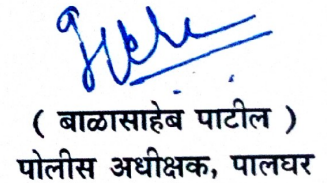 ( बाळासाहेब पाटील )
पोलीस अधीक्षक, पालघर